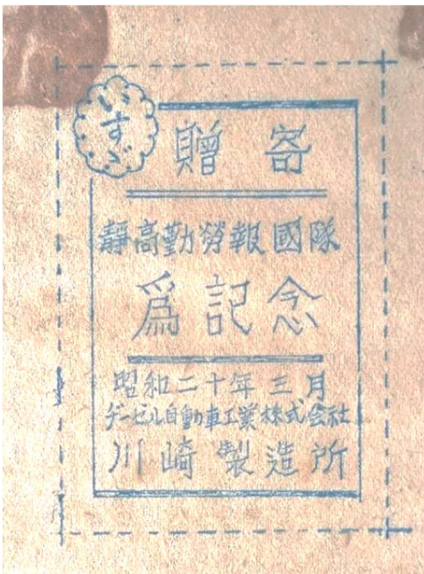 いすゞ
寄贈
靜高勤勞報國隊
爲記念
昭和二十年三月
ヂーゼル自動車工業株式会社
川崎製造所